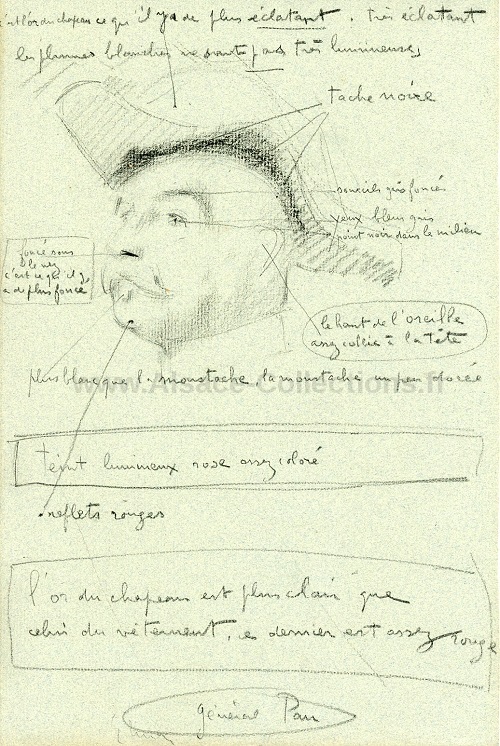 c'est l'or du chapeau ce qu'il y a de plus éclatant. très éclatant
les plumes blanches ne sont pas très lumineuses
tache noire
sourcils gris foncés
yeux bleus gris
point noir dans le milieu
foncé sous
le nez
c'est ce qu'il y
a de plus foncé
le haut de l'oreille
assez collée à la Tête
plus blanc que la moustache, la moustache un peu dorée
www.Alsace-Collections.fr
teint lumineux rose assez coloré
reflets rouges
l'or du chapeau est plus clair que
celui du vêtement, ce dernier est assez rouge
général Pau